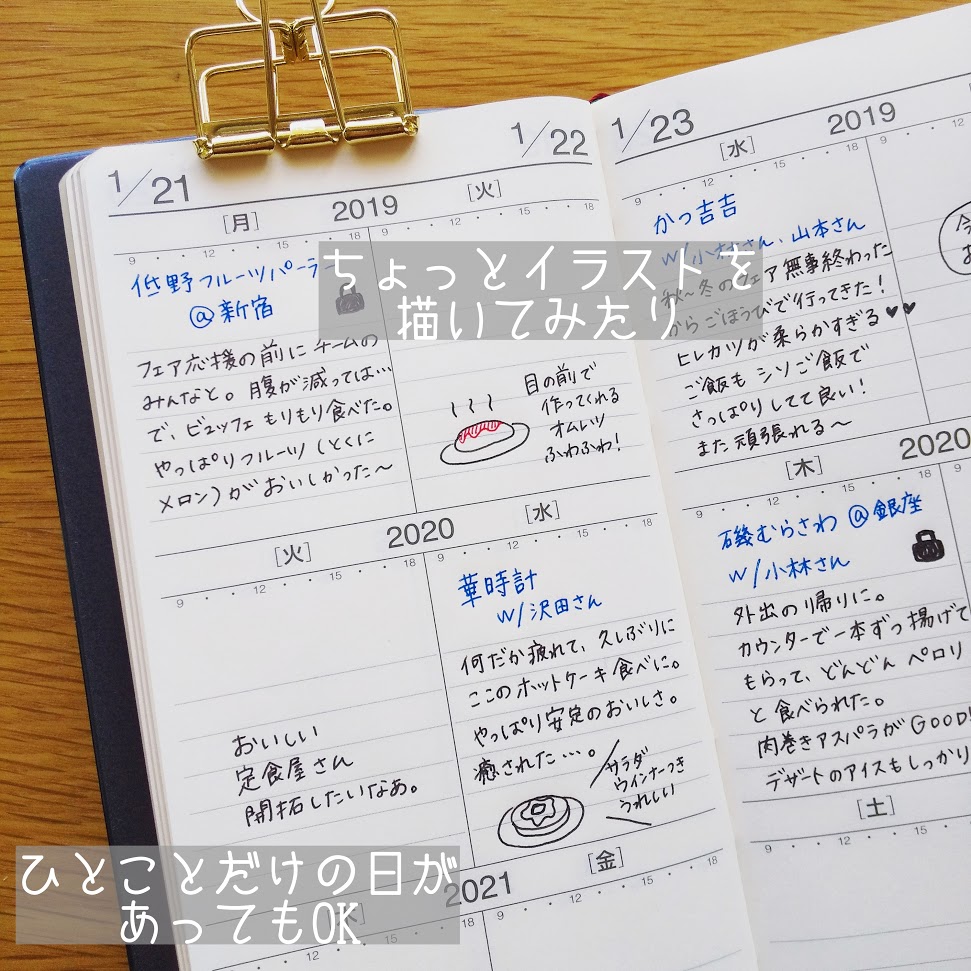 1/21
[月]
2019
9 12 15 18
低野フルーツパーラー
@新宿
フェア応援の前にチームの
みんなと。腹が減っては…
で、ビュッフェもりもり食べた。
やっぱりフルーツ(とくに
メロン)がおいしかった〜
1/22
[火]
9 12 15 18
ちょっとイラストを
描いてみたり
目の前で
作ってくれる
オムレツ
ふわふわ!
1/23
[水]
2019
9 12 15 18
かつ吉吉
w/小林さん、山本さん
秋〜冬のフェア無事終わった
からごほうびで行ってきた!
ヒレカツが柔らかすぎる♥♥
ご飯もシソご飯で
さっぱりしてて良い!
また頑張れる〜
9 12
[火]
2020
9 12 15 18
おいしい
定食屋さん
開拓したいなあ。
[水]
9 12 15 18
華時計
w/沢田さん
何だか疲れて、久しぶりに
ここのホットケーキ食べに。
やっぱり安定のおいしさ。
癒された…。
サラダ
ウインナーつき
うれしい
[木]
2020
9 12 15 18
磯むらさわ @銀座
w/小林さん
外出の帰りに。
カウンターで一本ずつ揚げて
もらって、どんどんペロリ
と食べられた。
肉巻きアスパラがGOOD!
デザートのアイスもしっかり
ひとことだけの日が
あってもOK
2021
18
[金]
9 12 15 18
[土]
9 12 15 18